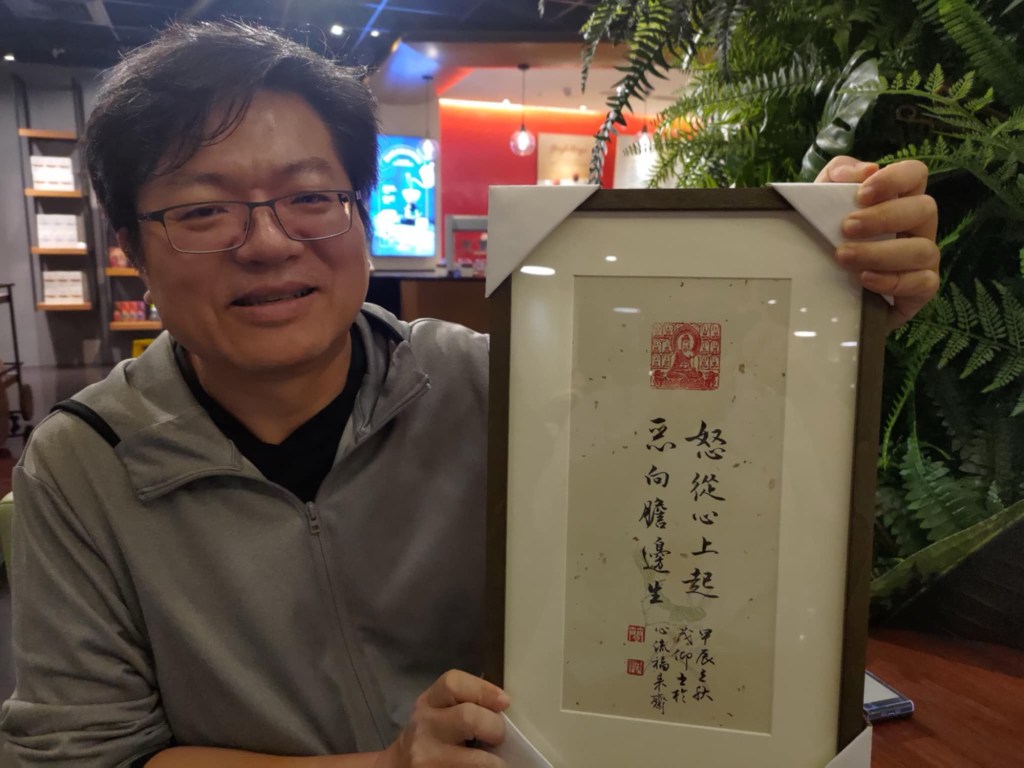 怒從心上起
惡向膽邊生
甲辰之秋
茂仰書於
心流福來齋